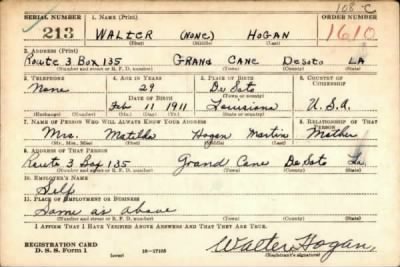 SERIAL NUMBER 1. NAME (Print) 108 C ORDER NUMBER
213 WALTER (NONE) HOGAN 1610
(First) (Middle) (Last)
2. ADDRESS (Print)
Route 3 Box 135 GRANG CANE DeSoto LA
(Number and street or R. F. D. number) (Town) (County) (State)
3. TELEPHONE 4. AGE IN YEARS 5. PLACE OF BIRTH 6. COUNTRY OF CITIZENSHIP
None 29 De Soto
DATE OF BIRTH (Town or county)
Feb 11 1911 Louisiana U.S.A.
(Exchange) (Number) (Mo.) (Day) (Yr.) (State or country)
7. NAME OF PERSON WHO WILL ALWAYS KNOW YOUR ADDRESS 8. RELATIONSHIP OF THAT PERSON
Mrs. Matilda Hogan Martin Mother
(Mr., Mrs., Miss) (First) (Middle) (Last)
9. ADDRESS OF THAT PERSON
Route 3 Box 135 Grand Cane De Soto La.
(Number and street or R. F. D. number) (Town) (County) (State)
10. EMPLOYER'S NAME
Self
11. PLACE OF EMPLOYMENT OR BUSINESS
Same as above
(Number and street or R. F. D. number) (Town) (County) (State)
I AFFIRM THAT I HAVE VERIFIED ABOVE ANSWERS AND THAT THEY ARE TRUE.
REGISTRATION CARD
D. S. S. Form 1 (over) Walter Hogan
(Registrant's signature)